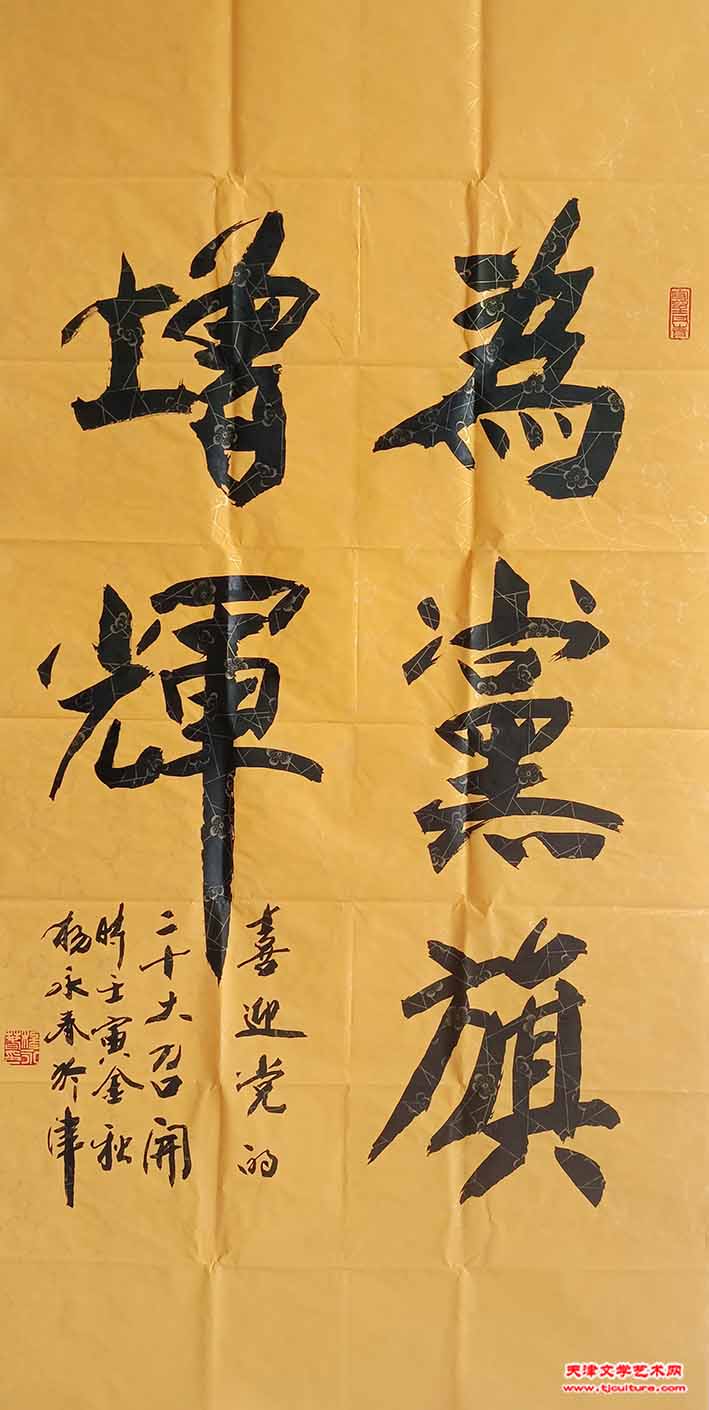 為黨旗
增輝
喜迎党的
二十大召開
時壬寅金秋
楊永春於津
天津文学艺术网
www.tjculture.com